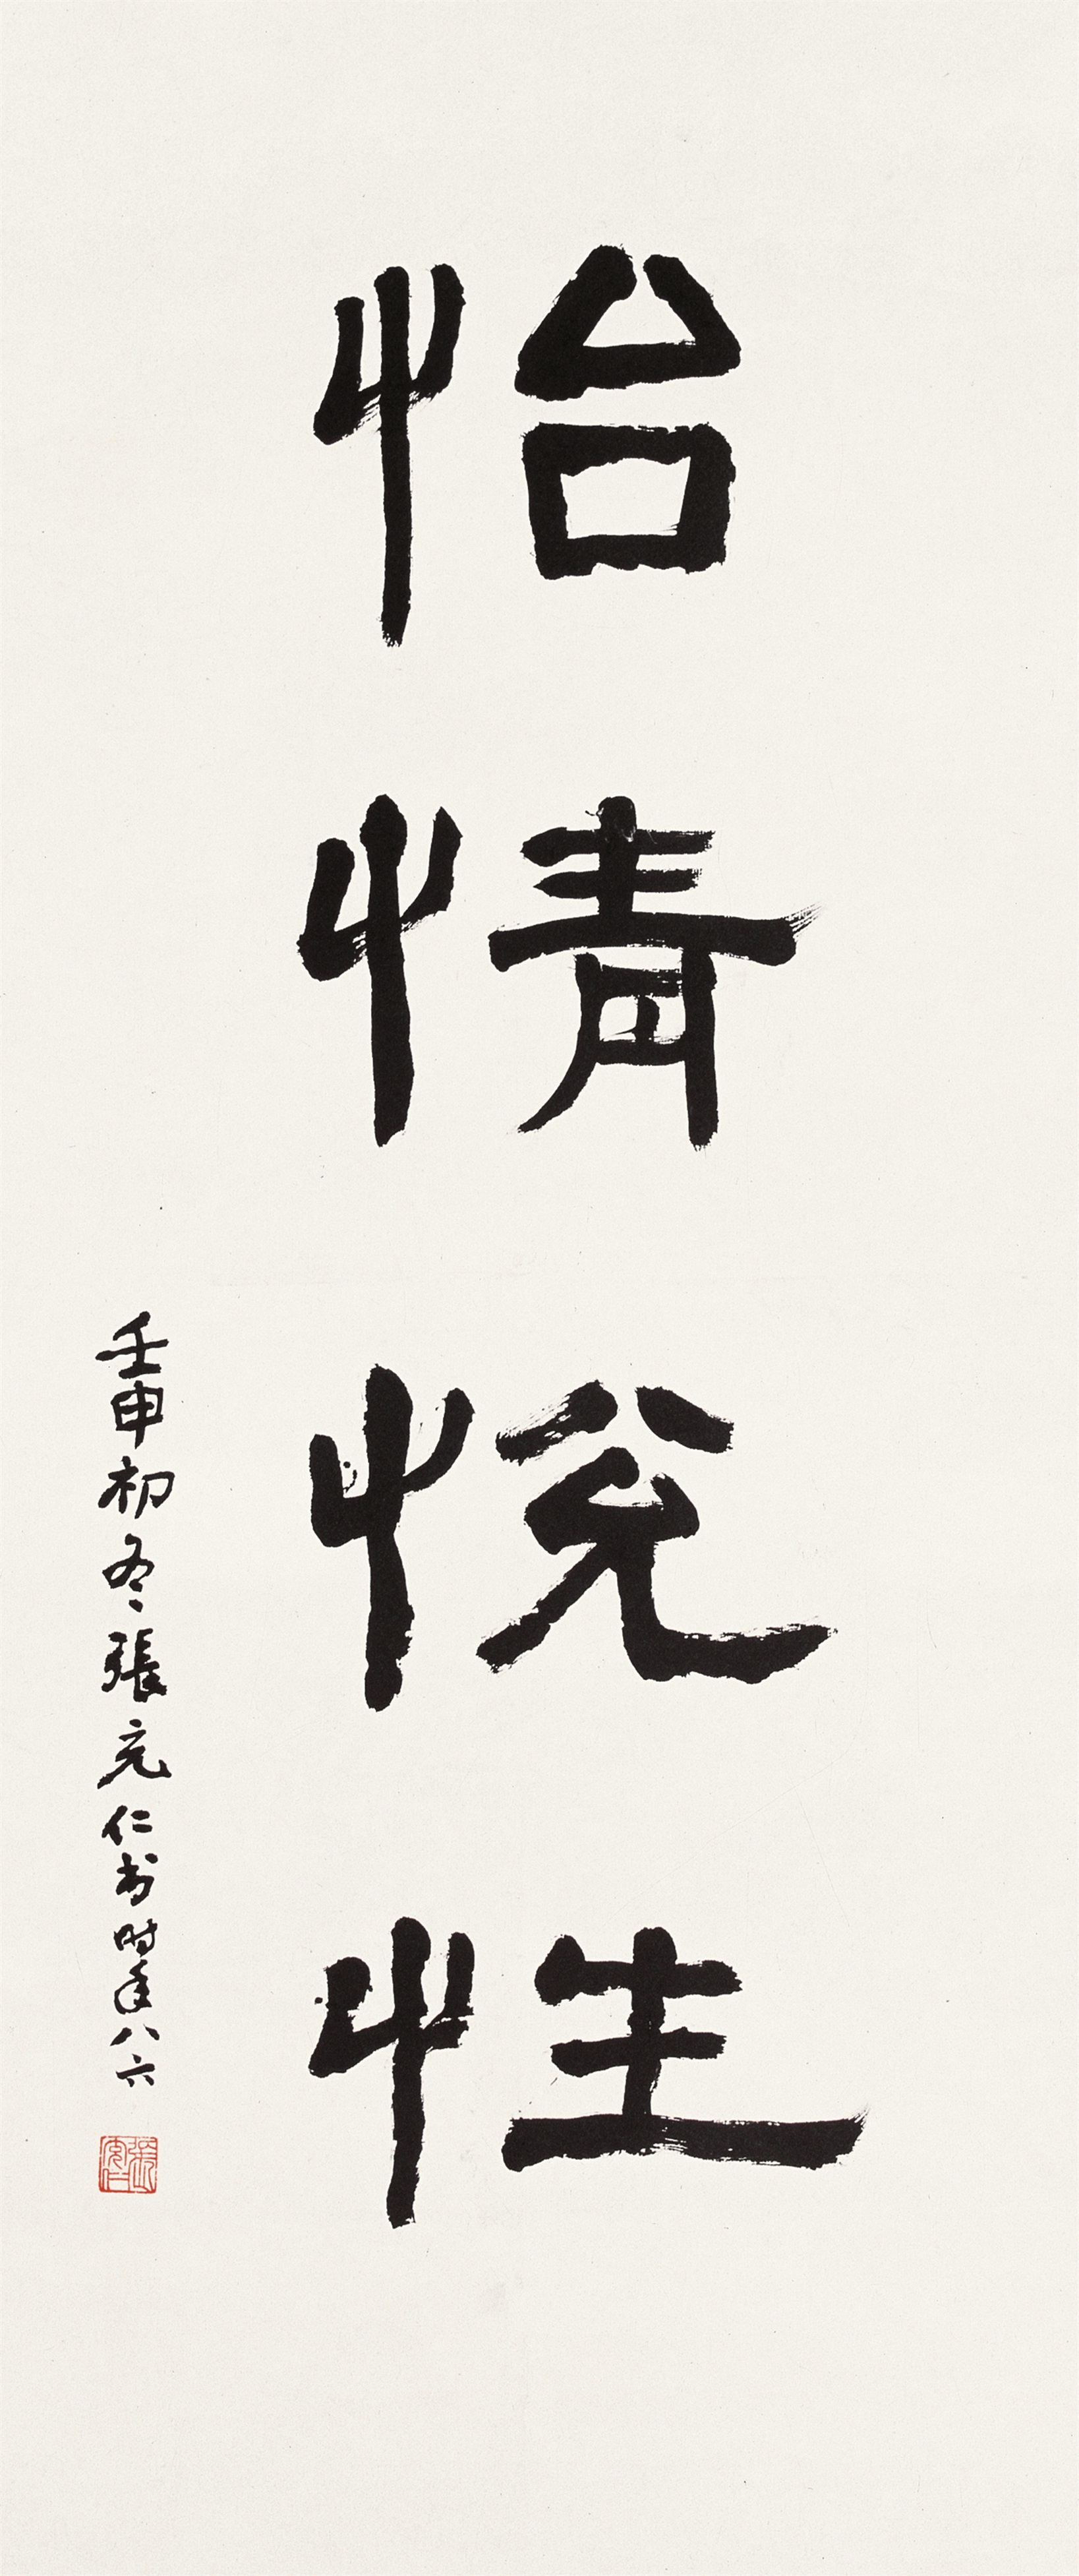 怡情悅性
壬申初冬張充仁书时年八六